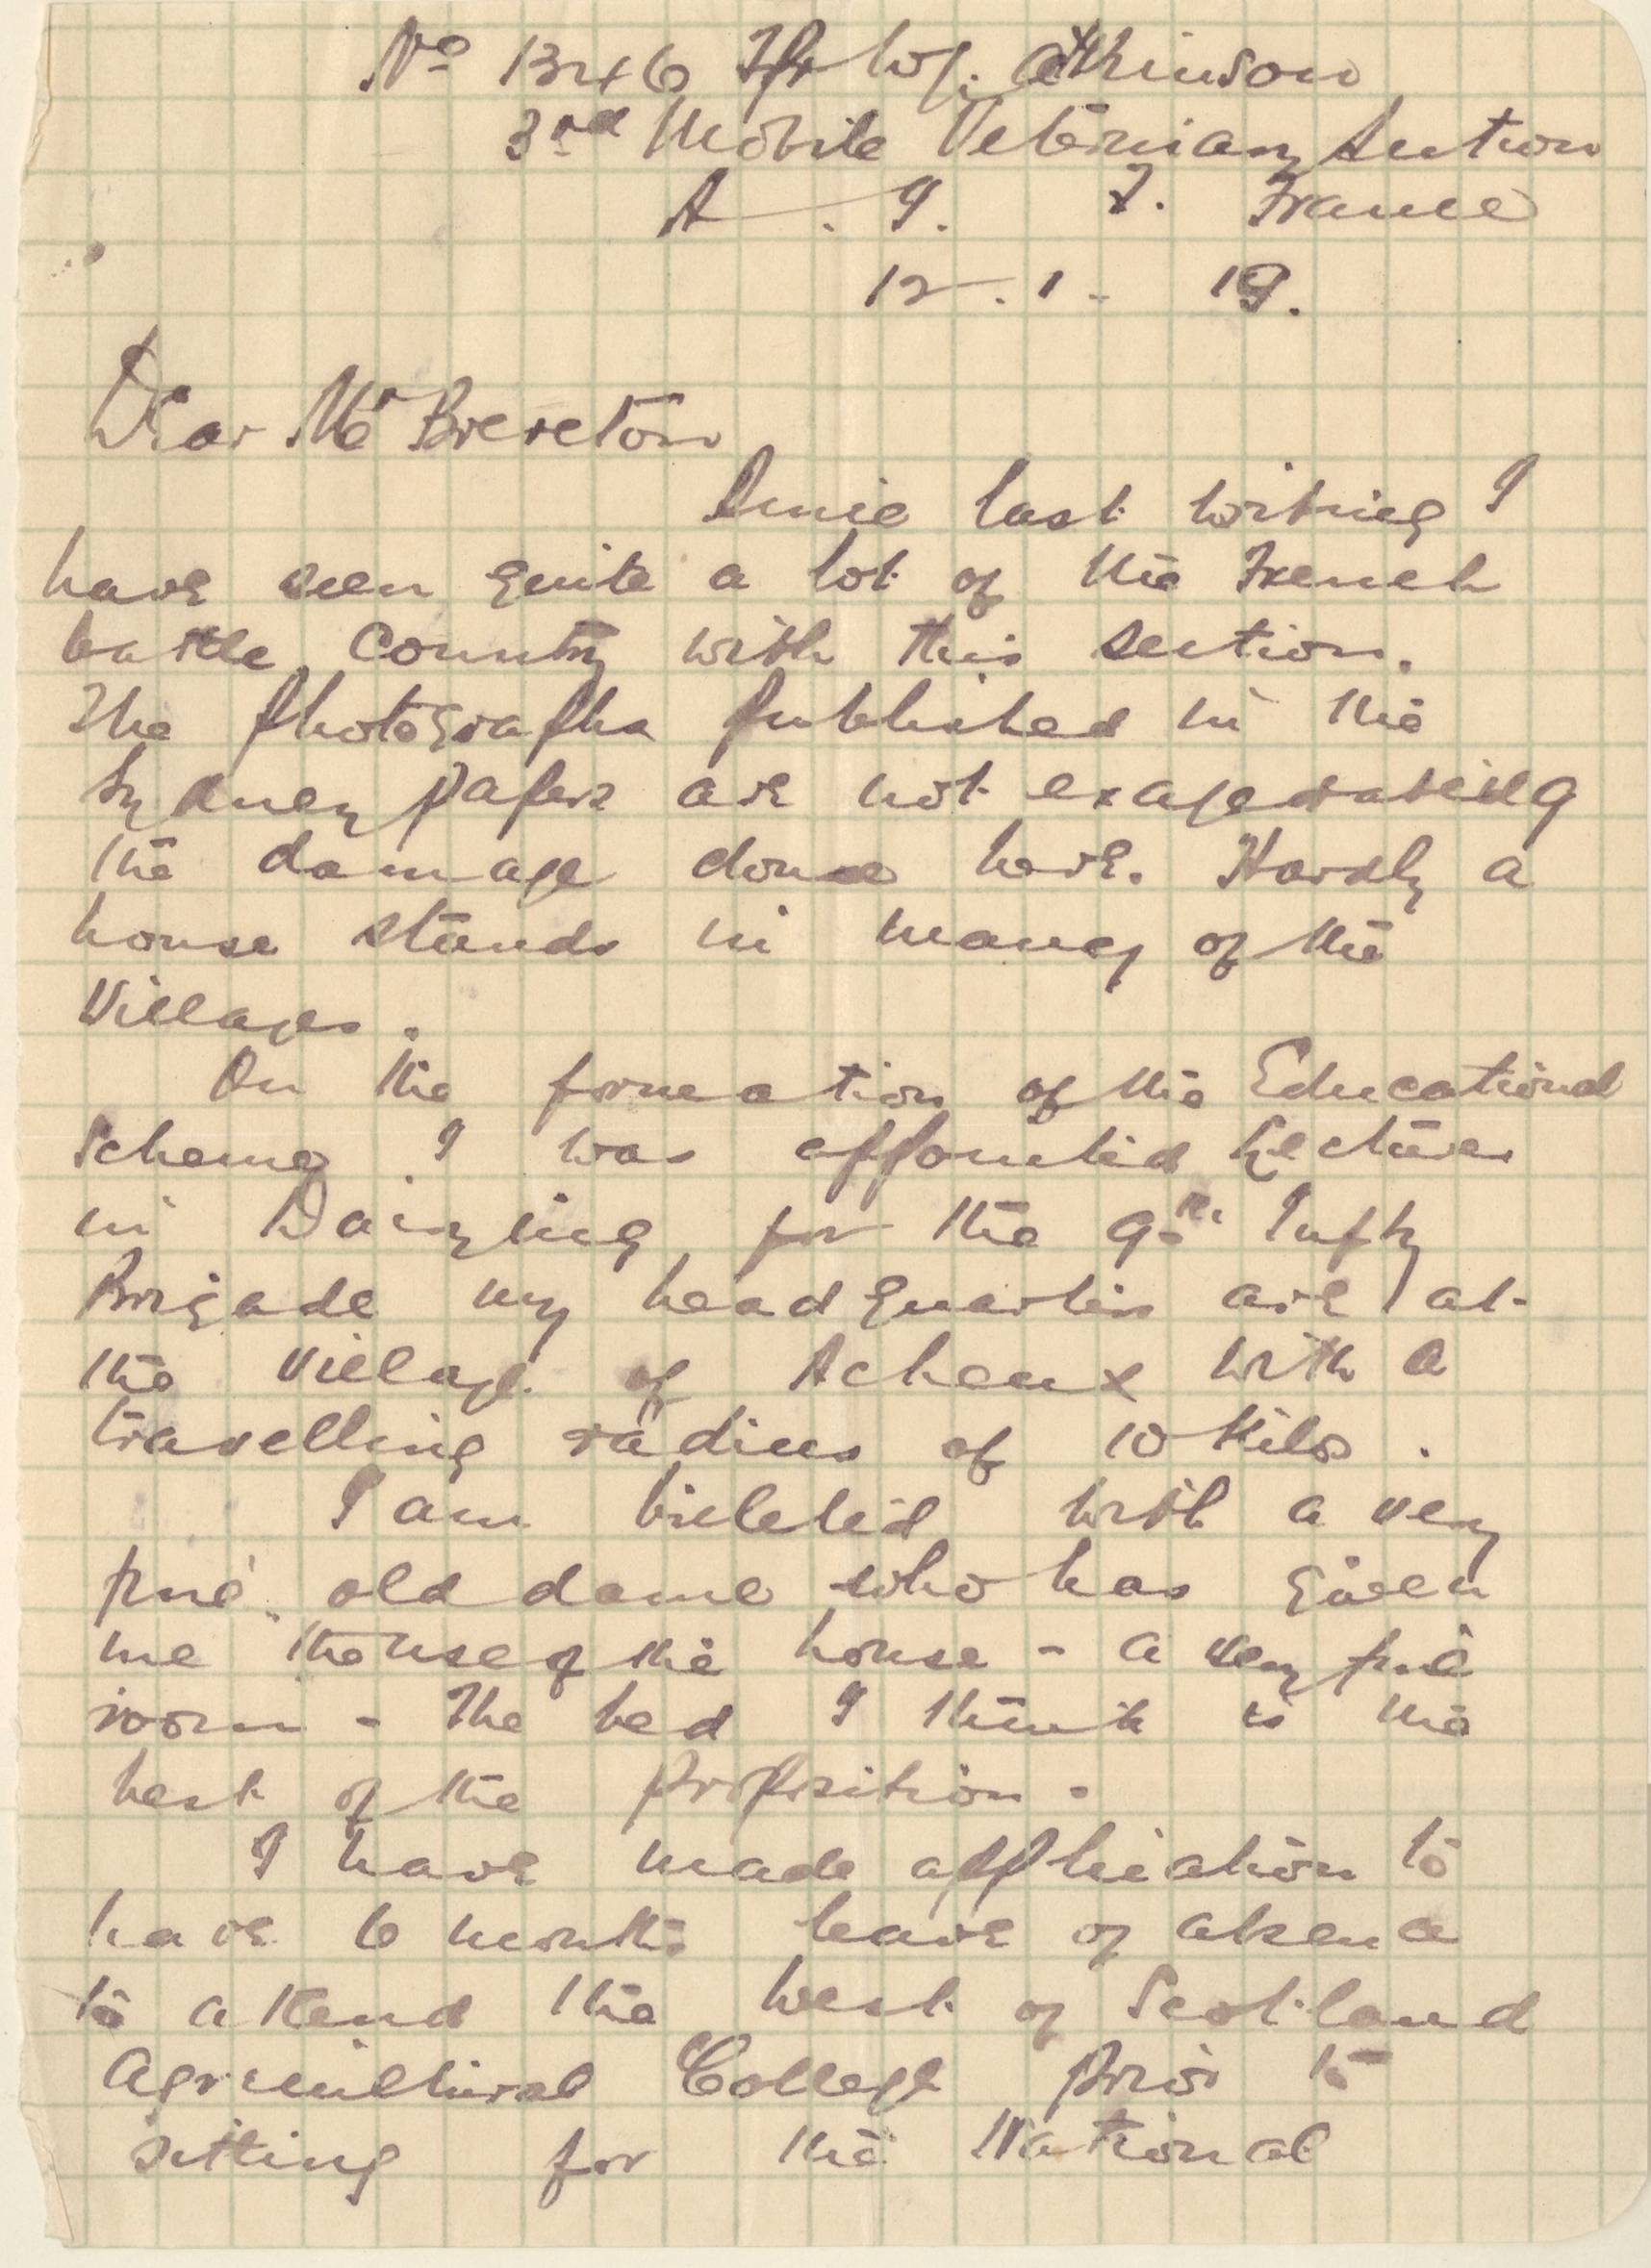 No 13246 Tpr W. J. Atkinson
3rd Mobile Veterinary Section
A. I. F. France
12. 1. 19.
Dear Mr Brereton
Since last writing I
have seen quite a lot of the French
battle country with this section.
The photographs published in the
Sydney papers are not exagerating
the damage done here. Hardly a
house stands in many of the
Villages.
On the formation of the Educational
Scheme I was appointed Lecturer
in Dairying for the 9th Infty
Brigade my headquarters are at
the village of Acheux with a
travelling radius of 10 Kilos.
I am billeted with a very
fine old dame who has given
me the use of the house - a very fine
room - The bed I think is the
best of the proposition.
I have made application to
have 6 months leave of absence
to attend the West of Scotland
Agricultural College prior to
sitting for the National